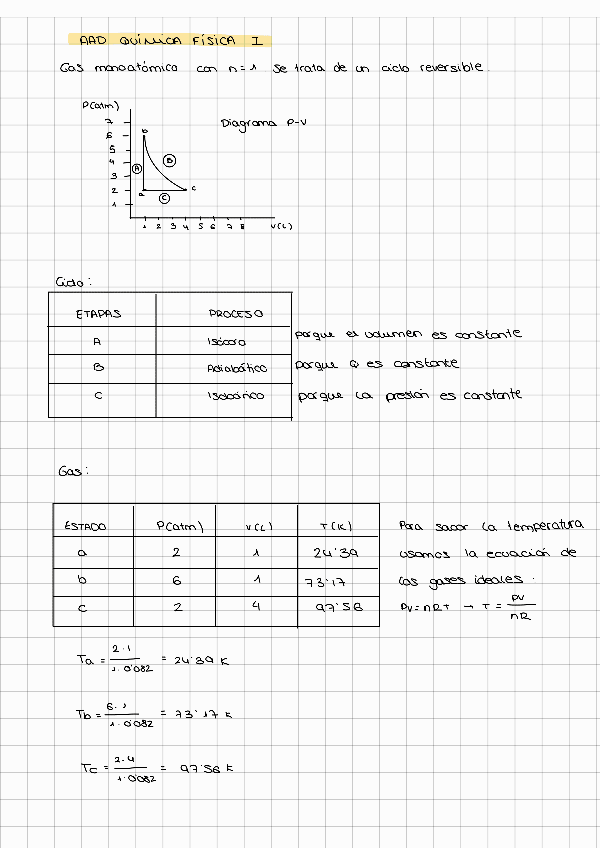 AAD QUÍMICA FÍSICA I
Gas monoatómico con n=1 se trata de un ciclo reversible.
P(atm)
Diagrama P-V
7
6
5
4
3
2
1
b
B
A
a
C
c
1 2 3 4 5 6 7 8 V(L)
Ciclo:
ETAPAS PROCESO
A Isócoro porque el volumen es constante
B Adiabático porque Q es constante
C Isobárico porque la presión es constante
Gas:
ESTADO P(atm) V(L) T(K) Para sacar la temperatura
a 2 1 24'39 usamos la ecuación de
b 6 1 73'17 los gases ideales.
c 2 4 97'56 PV=nRT → T = PV/nR
Ta = 2·1/1·0'082 = 24'39 K
Tb = 6·1/1·0'082 = 73'17 K
Tc = 2·4/1·0'082 = 97'56 K